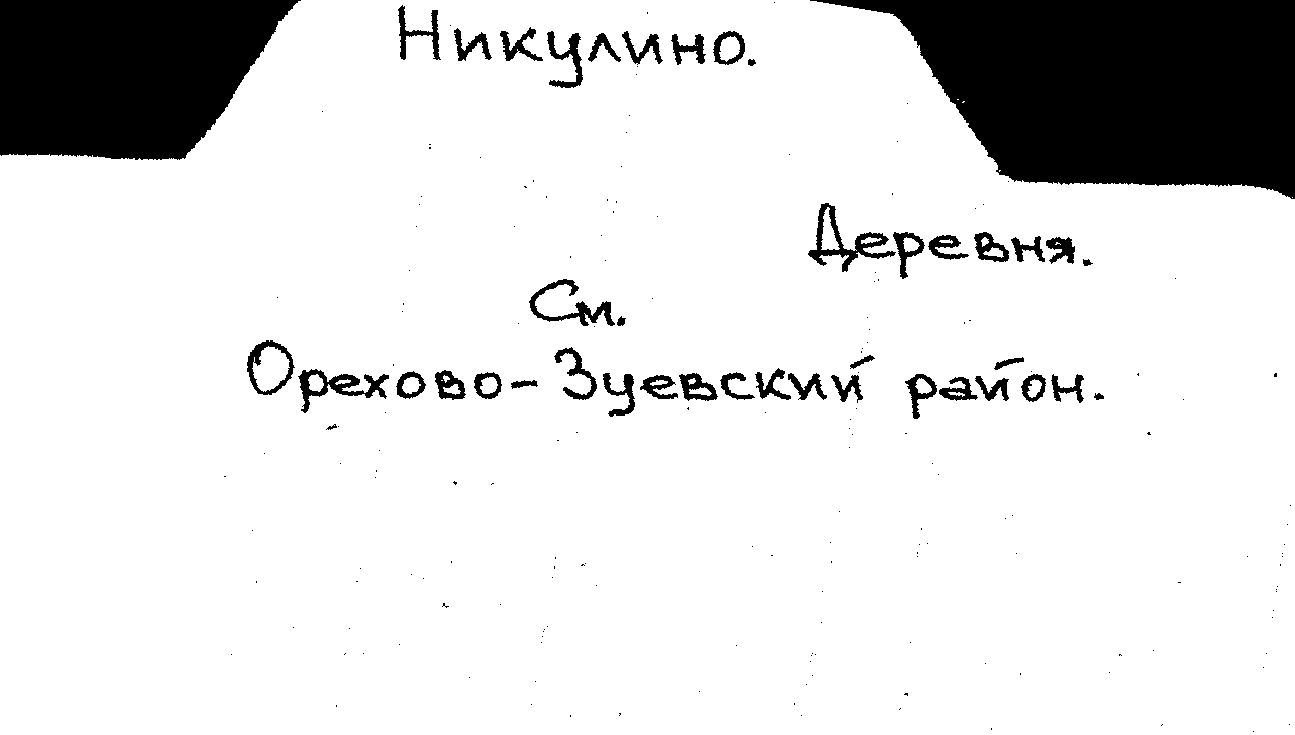 Никулино.
Деревня.
См.
Орехово-Зуевский район.